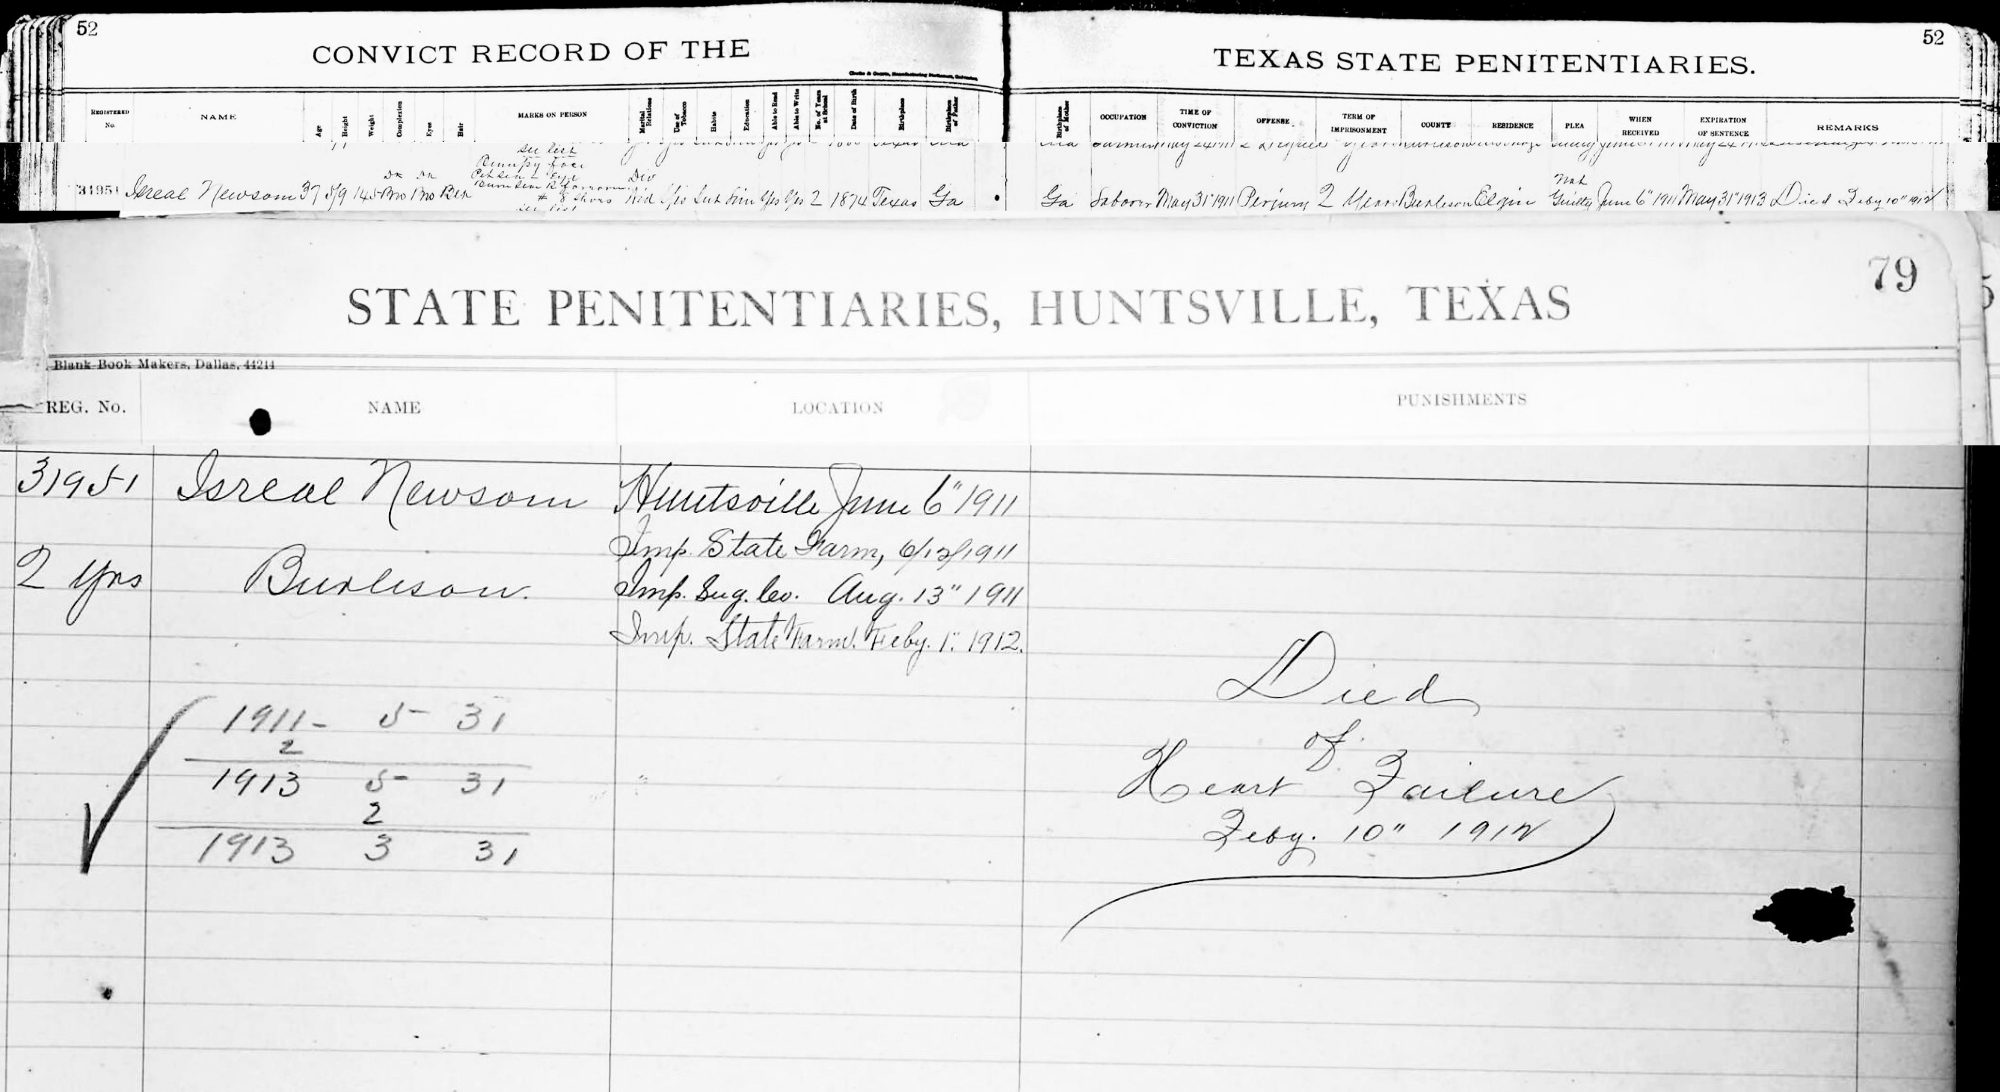 52
52
CONVICT RECORD OF THE TEXAS STATE PENITENTIARIES.
REGISTERED No. NAME Age Height Weight Complexion Eyes Hair MARKS ON PERSON Marital Relations Use of Tobacco Habits Education Able to Read Able to Write No. of Years at School Date of Birth Birthplace Birthplace of Father Birthplace of Mother OCCUPATION TIME OF CONVICTION OFFENSE TERM OF IMPRISONMENT COUNTY RESIDENCE PLEA WHEN RECEIVED EXPIRATION OF SENTENCE REMARKS
31951 Isreal Newsom 37 5/9 145 Dk Bro Dk Bro Blk Div Yes Yes Yes 2 1874 Texas Ga Ga Laborer May 31" 1911 Perjury 2 Years Burleson Elgin Not Guilty June 6" 1911 May 31" 1913 Died Feby 10" 1912
79
STATE PENITENTIARIES, HUNTSVILLE, TEXAS
Blank Book Makers, Dallas, 44214
REG. No. NAME LOCATION PUNISHMENTS
31951 Isreal Newsom Huntsville June 6" 1911
Imp. State Farm, 6/12/1911
2 yrs Burleson. Imp. Sug. Co. Aug. 13" 1911
Imp. State Farm. Feby. 1". 1912.
Died
of
Heart Failure
Feby. 10" 1912
1911- 5- 31
2
1913 5- 31
2
1913 3 31